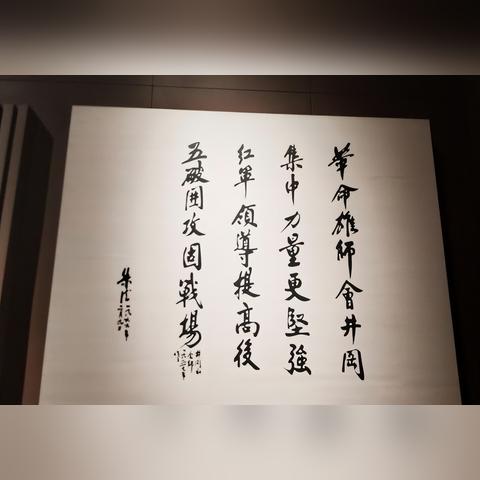 革命雄師會井岡
集中力量更堅強
红軍領導提高後
五破囲攻固戰場
井岡山
朱德